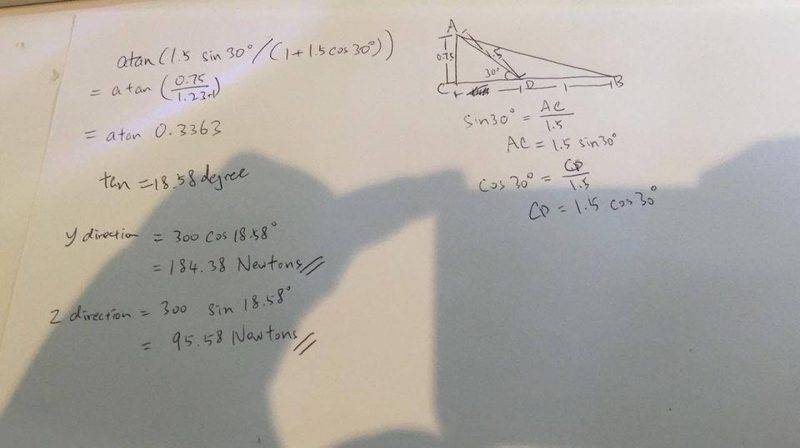 atan(1.5 sin30°/(1+1.5cos30°))
= atan(0.75/1.23+1)
= atan 0.3363
tan = 18.58 degree
Y direction = 300 cos 18.58°
= 184.38 Newtons
Z direction = 300 sin 18.58°
= 95.58 Newtons
A
0.75
1.5
30°
C
D
1
B
sin30° = AC/1.5
AC = 1.5 sin30°
cos30° = CD/1.5
CD = 1.5 cos30°